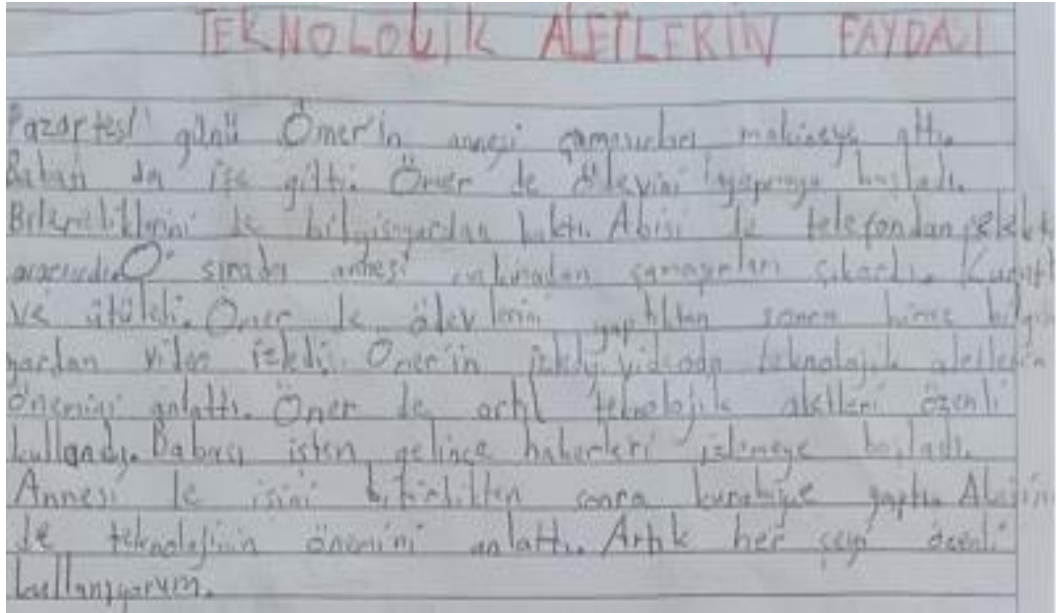 TEKNOLOJİK ALETLERİN FAYDASI
Pazartesi günü Ömer'in annesi çamaşırları makineye attı.
Babası da işe gitti. Ömer de ödevini yapmaya başladı.
Bilemediklerini de bilgisayardan baktı. Abisi de telefondan
O sırada annesi makinadan çamaşırları çıkardı.
ve ütüledi. Ömer de ödevlerini yaptıktan sonra biraz bilgisa
yardan video izledi. Ömer'in videoda teknolojik aletlerin
önemini anlattı. Ömer de artık teknolojik aletleri özenli
kullandı. Babası işten gelince haberleri izlemeye başladı.
Annesi de işini bitirdikten sonra kurabiye yaptı.
de teknolojinin önemini anlattı. Artık her şeyi özenli
kullanıyorum.